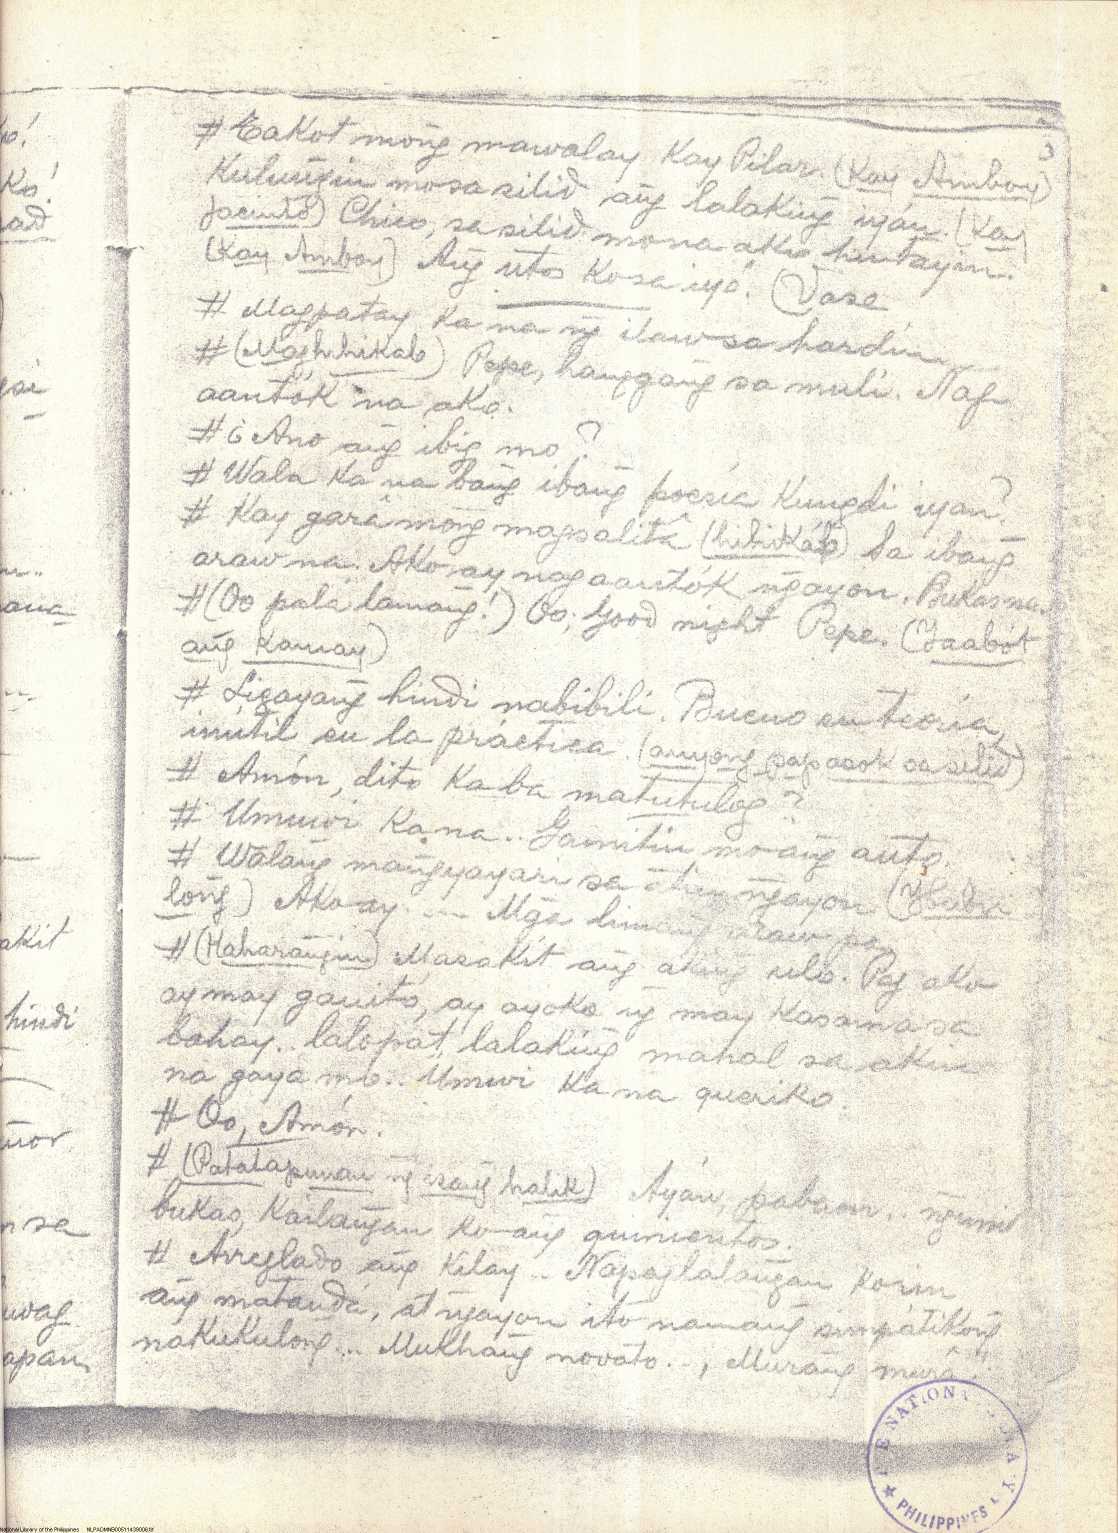 3
# Takot mong mawalay kay Pilar. (Kay Amboy)
Kulungin mo sa silid ang lalaking iyán. (Kay
Jacinto) Chico, sa silid mo na ako hintayin.
(Kay Amboy) Ang utos ko sa iyó. (Vase
# Magpatay ka na ng ilaw sa hardin
# (Maghihikab) Pepe, hanggang sa muli. Nag
aantók na ako.
# ¿Ano ang ibig mo?
# Wala ka na bang ibang poesía kungdi iyan?
# Kay garâ mong magsalitâ (hihikáb) Sa ibang
araw na. Ako ay nagaantók ngayon. Bukas na..
# (Oo palá lamang!) Oo; Good night Pepe. (Iaabót
ang kamay)
# Ligayang hindi nabibili. Bueno en teoría,
inútil en la práctica. (anyong papasok sa silid)
# Amón, dito ka ba matutulog?
# Umuwi ka na.. Gamitin mo ang auto.
# Walang mangyayari sa atin ngayon
long) Ako ay .... Mga limang araw pa
# (Haharangin) Masakit ang aking ulo. Pag ako
ay may ganitó, ay ayoko ng may kasama sa
bahay.. lalo pat, lalaking mahal sa akin
na gaya mo.. Umuwi ka na queriko.
# Oo, Amón.
# (Patatapunan ng isang halik) Ayán, pabaon.
bukas, kailangan ko ang quinientos.
# Arreglado ang kilay.. Napaglalangan ko rin
ang matandá, at ngayon ito namang simpátikong
nakukulong... Mukhang novato.., Murang
hindi
n sa
PHILIPPINES
National Library of the Philippines